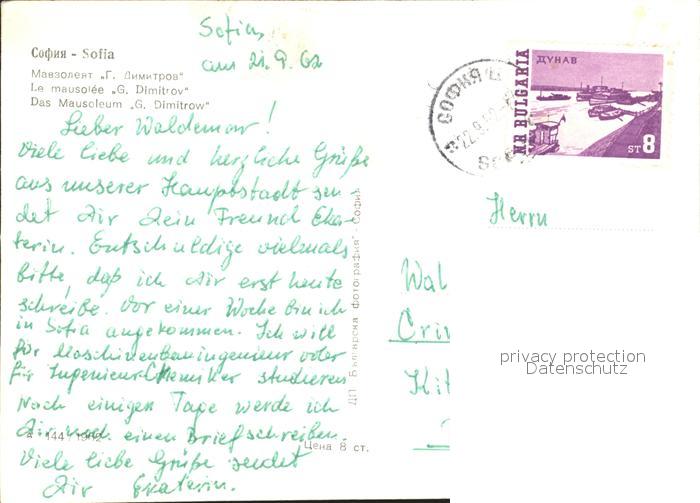 София - Sofia
Мавзолеят „Г. Димитров“
Le mausolée „G. Dimitrov“
Das Mausoleum „G. Dimitrow“
Sofia,
am 21.9.62
Lieber Waldemar!
Viele liebe und herzliche Grüße
aus unserer Hauptstadt sen-
det Dir Dein Freund Eka-
terin. Entschuldige vielmals
bitte, daß ich Dir erst heute
schreibe. Vor einer Woche bin ich
in Sofia angekommen. Ich will
für Maschinenbauingenieur oder
für Ingenieur-Chemiker studieren
Nach einigen Tage werde ich
Dir noch einen Brief schreiben.
Viele liebe Grüße sendet
Dir Ekaterin.
144 1962
Цена 8 ст.
ДП „Българска фотография“ - София
СОФИЯ
22.9.62
NR BULGARIA
ДУНАВ
ST 8
Herrn
Wal
privacy protection
Datenschutz